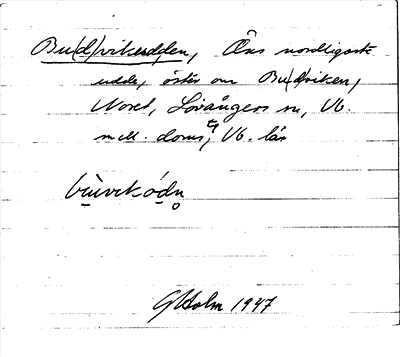 Bu(d)vikudden, Öns nordligaste
udde, öster om Bu(d)viken,
Noret, Lövångers sn, Vb.
mell. doms, Vb. län
bùvikódn̥
G Holm 1947